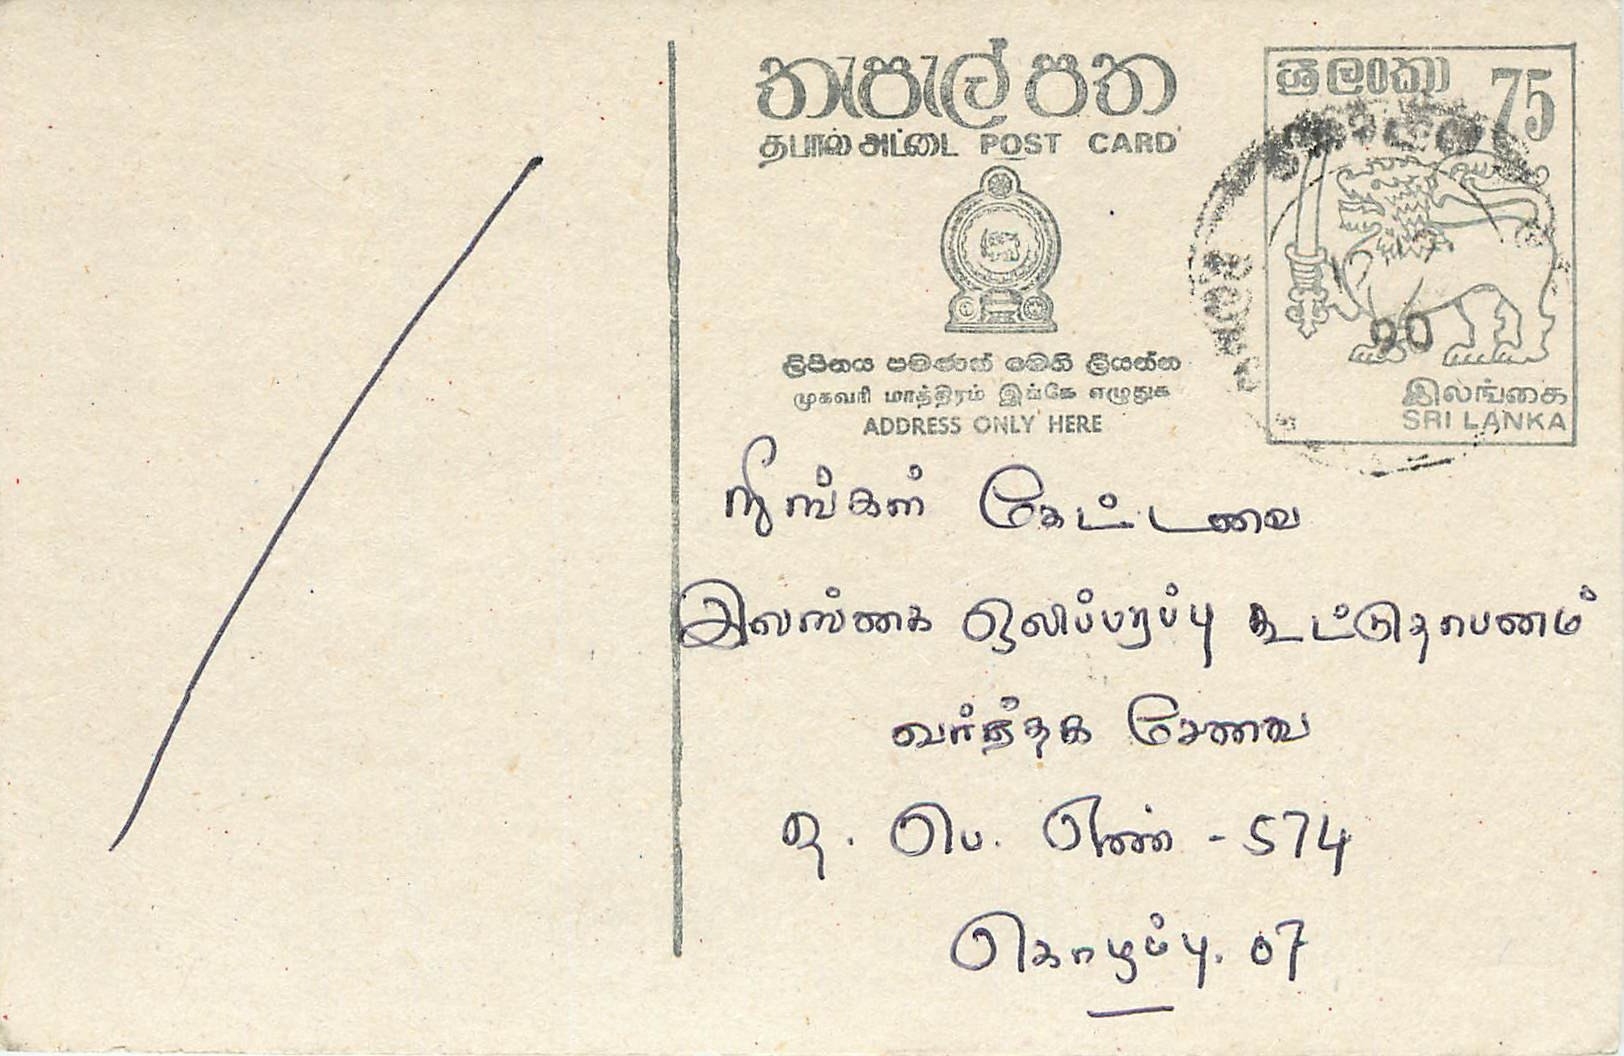 තැපැල් පත
ශ්‍රී ලංකා 75
தபால் அட்டை POST CARD
ලිපිනය පමණක් මෙහි ලියන්න
முகவரி மாத்திரம் இங்கே எழுதுக
ADDRESS ONLY HERE
90
இலங்கை
SRI LANKA
நீங்கள் கேட்டவை
இலங்கை ஒலிபரப்பு கூட்டுதாபனம்
வர்த்தக சேவை
த. பெ. எண் - 574
கொழும்பு. 07